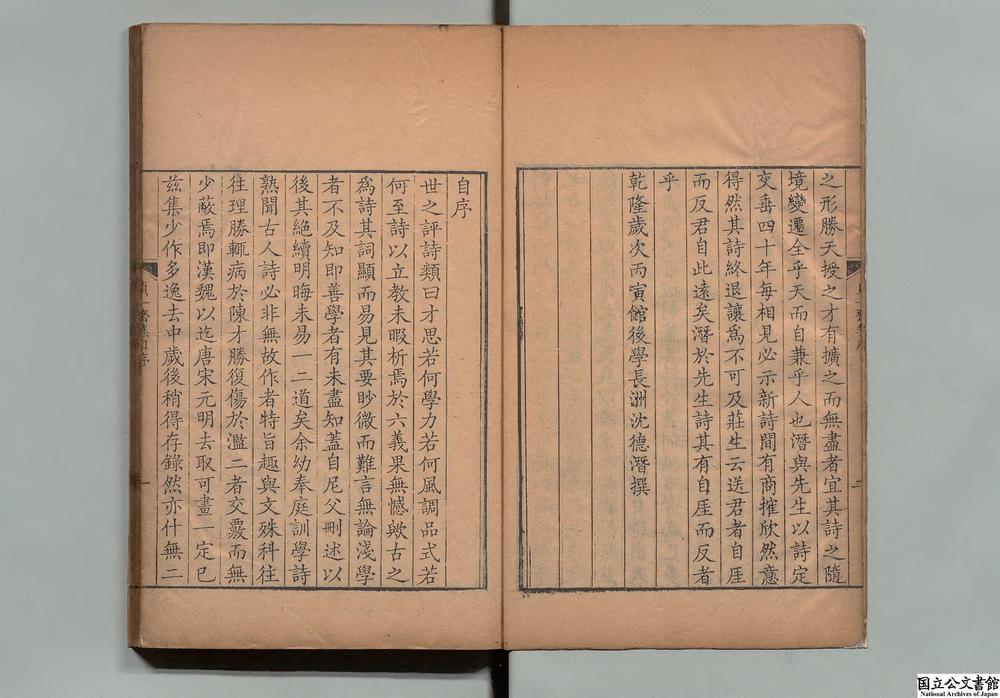 之形勝天授之才有擴之而無盡者宜其詩之隨
境變遷全乎天而自兼乎人也潛與先生以詩定
交垂四十年每相見必示新詩間有商搉欣然意
得然其詩終退讓為不可及莊生云送君者自厓
而反君自此遠矣潛於先生詩其有自厓而反者
乎
乾隆歲次丙寅館後學長洲沈德潛撰
自序
世之評詩類曰才思若何學力若何風調品式若
何至詩以立教未暇析焉於六義果無憾歟古之
為詩其詞顯而易見其要眇微而難言無論淺學
者不及知即善學者有未盡知蓋自尼父刪述以
後其絕續明晦未易一二道矣余幼奉庭訓學詩
熟聞古人詩必非無故作者特旨趣與文殊科往
往理勝輒病於陳才勝復傷於濫二者交覈而無
少蔽焉即漢魏以迄唐宋元明去取可畫一定已
茲集少作多逸去中歲後稍得存錄然亦什無二
貞一齋集自序
一
国立公文書館
National Archives of Japan